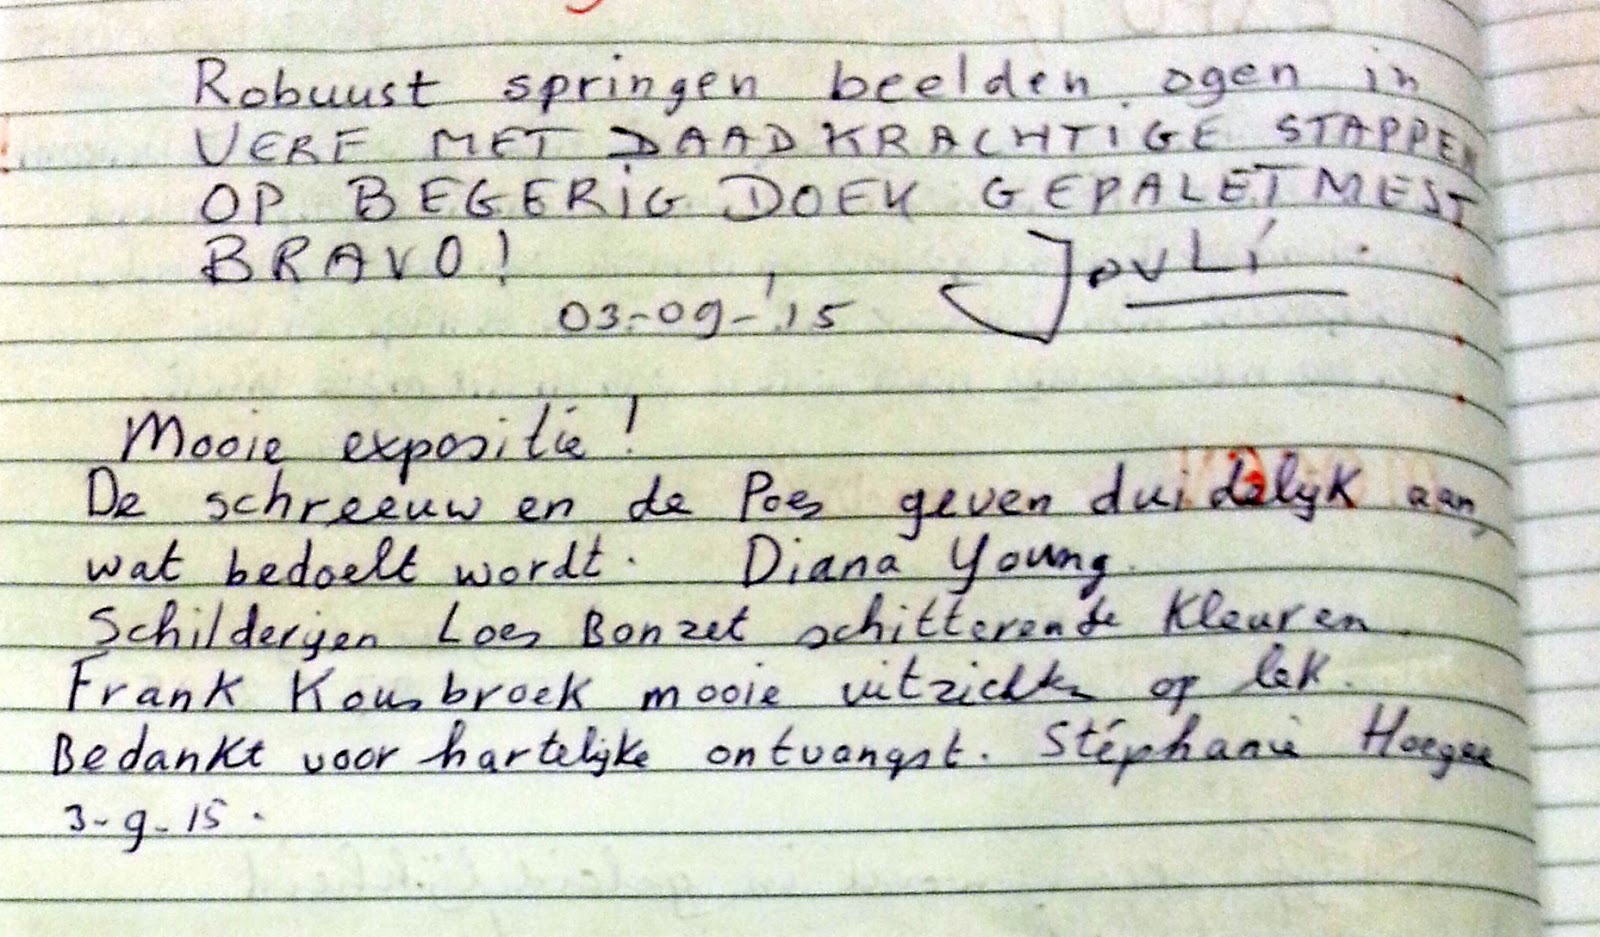 Robuust springen beelden ogen in
VERF MET DAADKRACHTIGE STAPPEN
OP BEGERIG DOEK GEPALETMEST
BRAVO!
03-09-'15
Mooie expositie!
De schreeuw en de Poes geven duidelijk aan
wat bedoelt wordt. Diana Young.
Schilderijen Loes Bonzet schitterende kleuren.
Frank Kousbroek mooie uitzichten op lek.
Bedankt voor hartelijke ontvangst. Stéphanie
3-9-15.